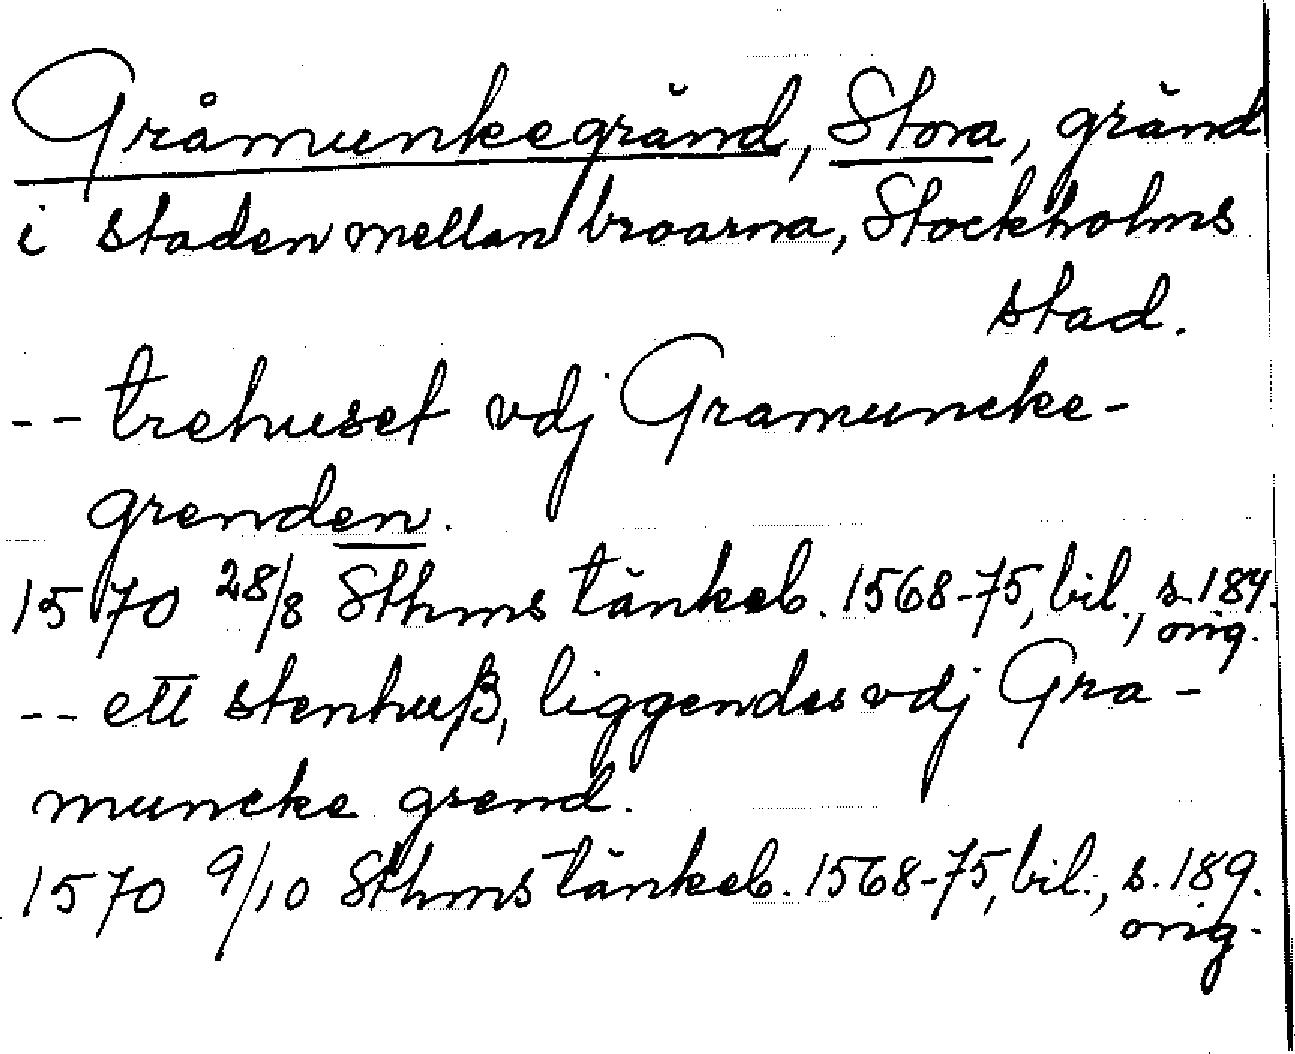 Gråmunkegränd, Stora, gränd
i staden mellan broarna, Stockholms
stad.
-- trehuset vdj Gramuncke-
grenden.
1570 28/8 Sthms tänkeb. 1568-75, bil., s. 184.
orig.
-- ett stenhuß, liggendes vdj Gra-
muncke grend.
1570 9/10 Sthms tänkeb. 1568-75, bil., s. 189.
orig.